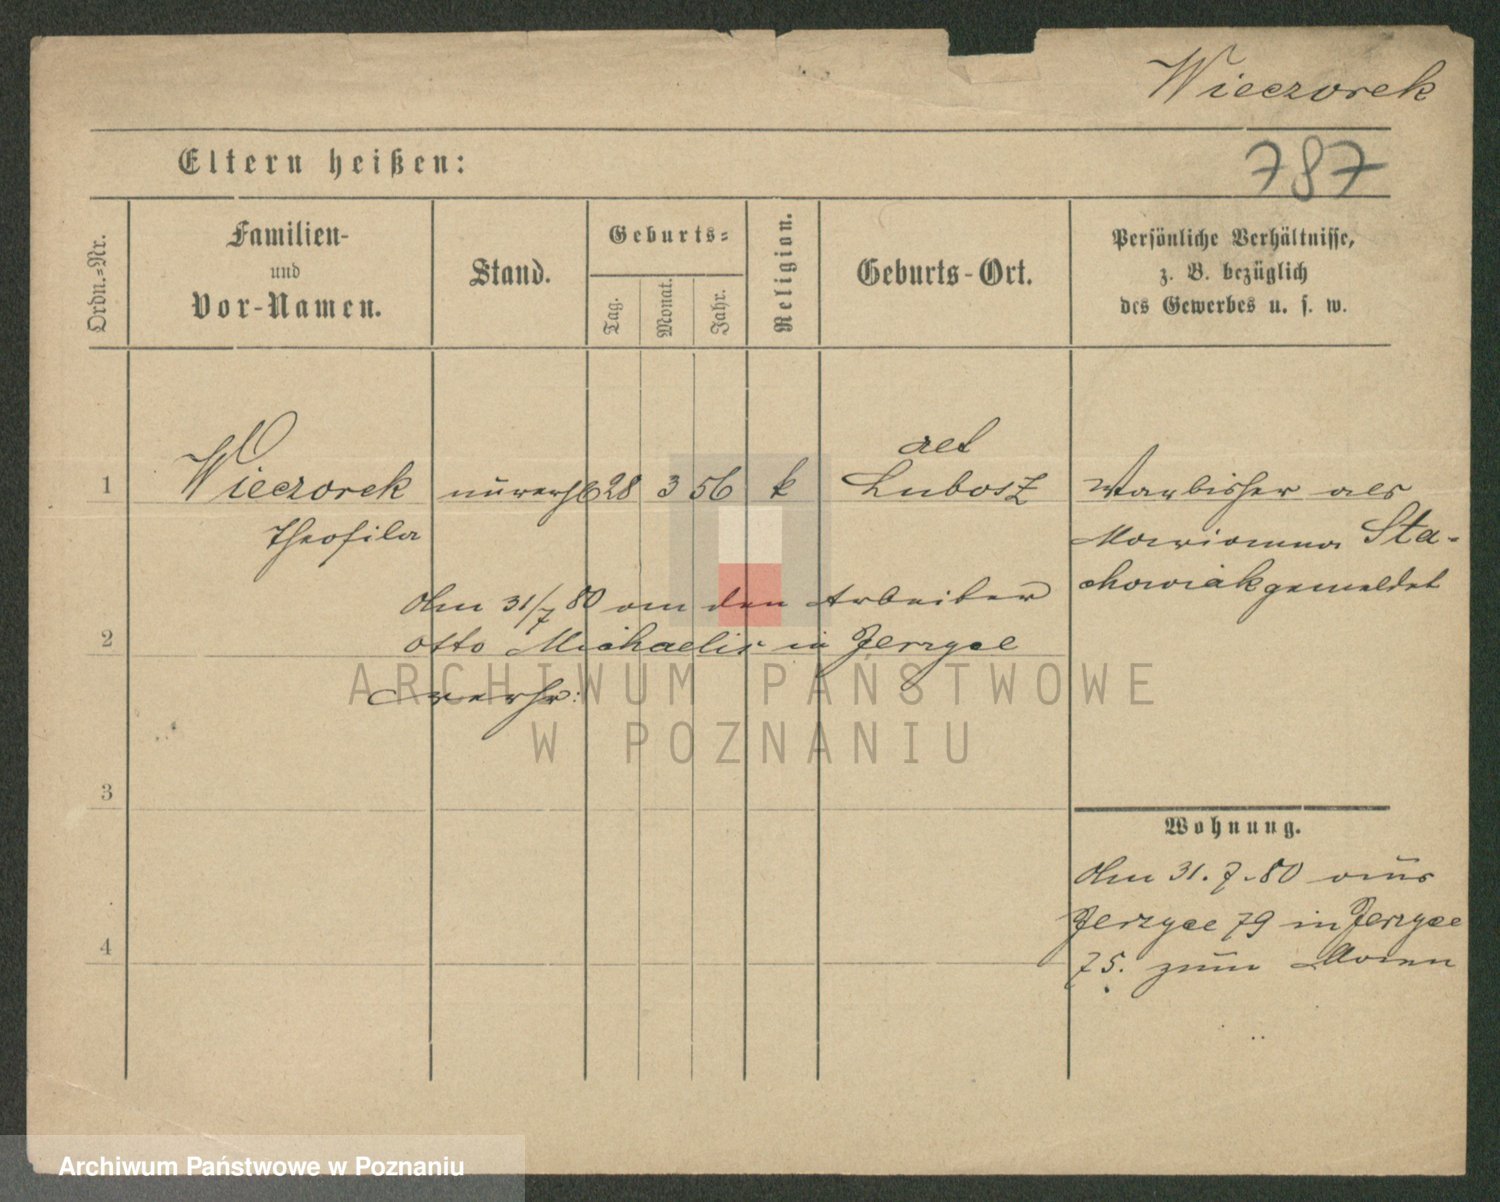 Wieczorek
Eltern heißen:
787
Ordn.-Nr.
Familien-
und
Vor-Namen.
Stand.
Geburts-
Tag.
Monat.
Jahr.
Religion.
Geburts-Ort.
Persönliche Verhältnisse,
z. B. bezüglich
des Gewerbes u. s. w.
1
Wieczorek
Theofila
unvereh
28
3
56
k
Lubosz
war bisher als
Marianna Sta-
chowiak gemeldet
Am 31/7 80 an den Arbeiter
2
Otto Michaelis in Jerzyce
verhr:
ARCHIWUM PAŃSTWOWE
W POZNANIU
3
Wohnung.
Am 31.7.80 aus
Jerzyce 79 in Jerzyce
4
75. zum Mann
Archiwum Państwowe w Poznaniu